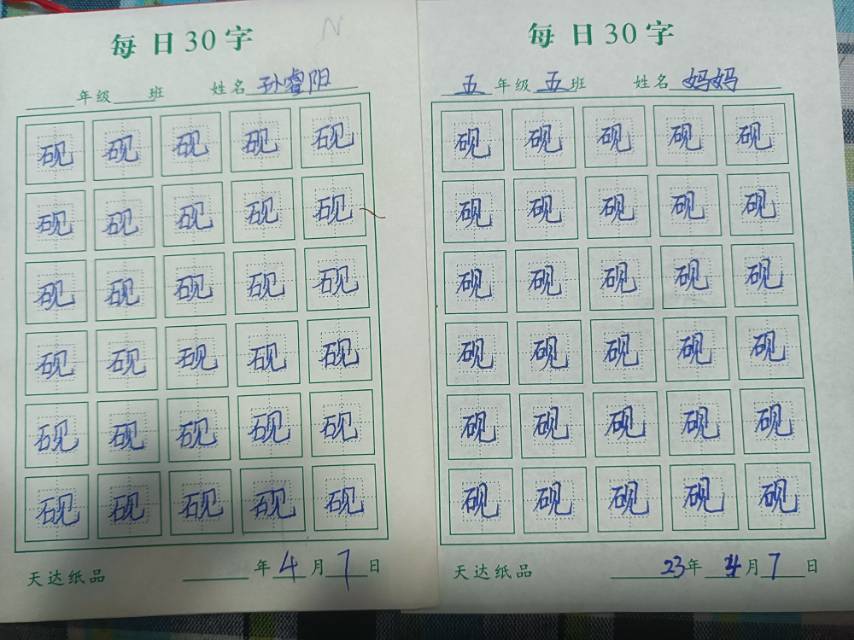 每日30字
年级 班 姓名 孙睿阳
砚 砚 砚 砚 砚
砚 砚 砚 砚 砚
砚 砚 砚 砚 砚
砚 砚 砚 砚 砚
砚 砚 砚 砚 砚
砚 砚 砚 砚 砚
天达纸品 年 4 月 7 日
每日30字
五 年级 五 班 姓名 妈妈
砚 砚 砚 砚 砚
砚 砚 砚 砚 砚
砚 砚 砚 砚 砚
砚 砚 砚 砚 砚
砚 砚 砚 砚 砚
砚 砚 砚 砚 砚
天达纸品 23 年 4 月 7 日